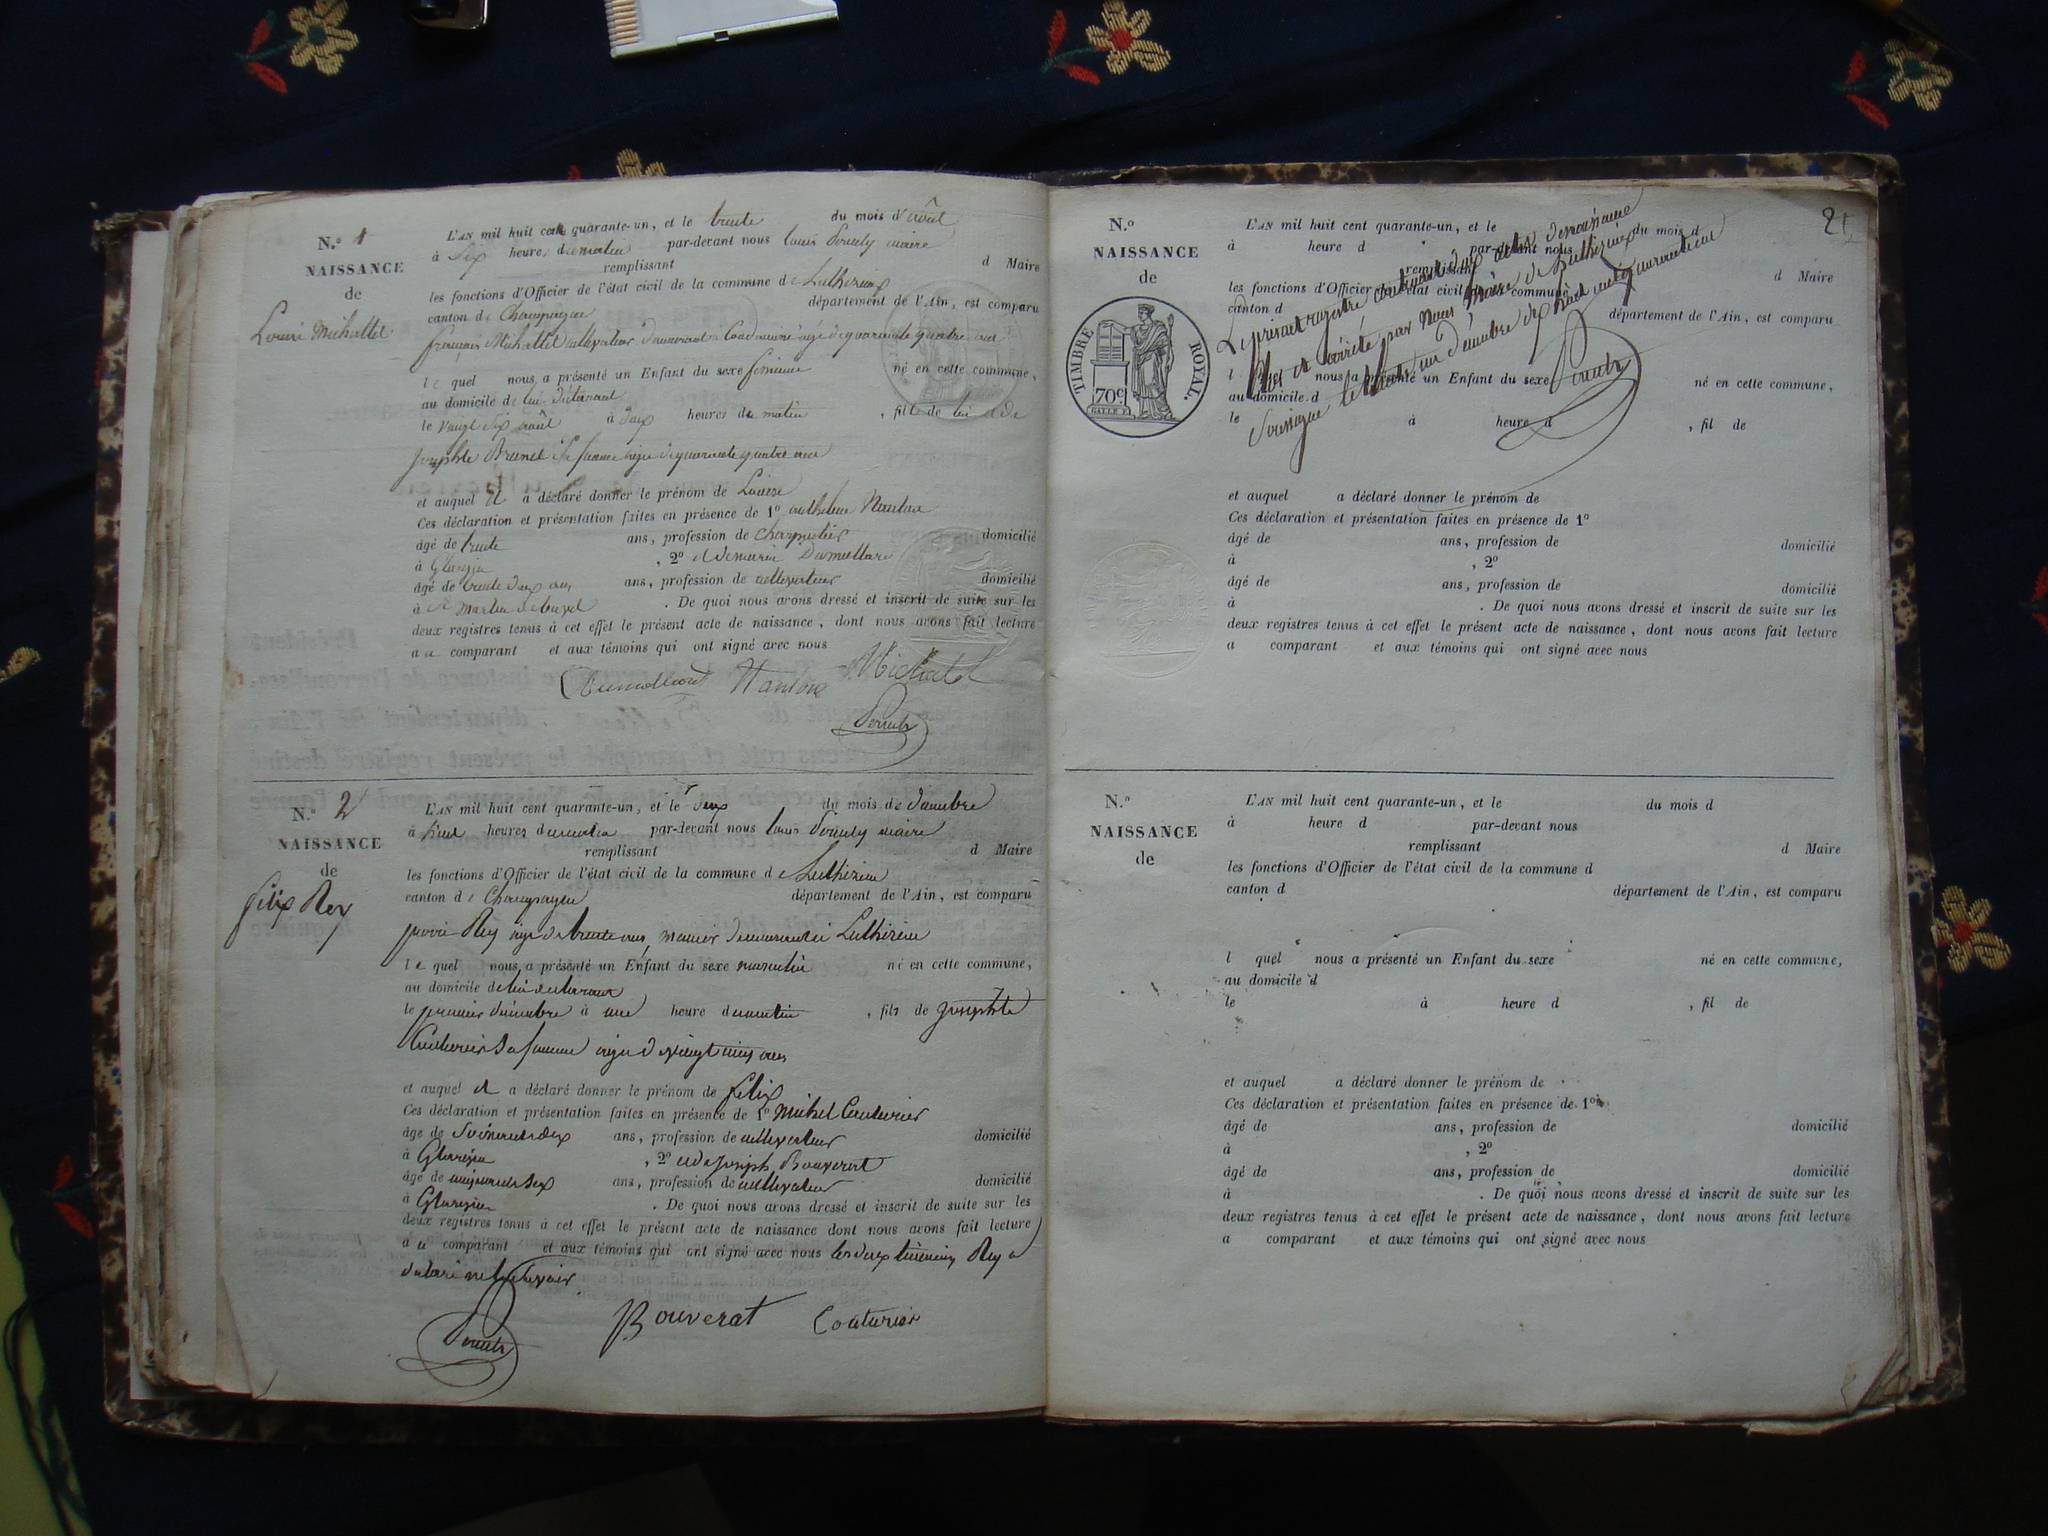 N.° 1
NAISSANCE
de
Louise Michallet
L'AN mil huit cent quarante-un, et le trente du mois d'août
à Six heures du matin par-devant nous Louis maire
remplissant d Maire
les fonctions d'Officier de l'état civil de la commune de Luthézieu
canton de Champagne département de l'Ain, est comparu
françois Michallet cultivateur demeurant à âgé de quarante quatre ans
le quel nous a présenté un Enfant du sexe féminin né en cette commune,
au domicile de lui déclarant
le vingt Six août à Six heures du matin, fille de lui et de
josephte Brunet Sa femme âgée de quarante quatre ans
et auquel il a déclaré donner le prénom de Louise
Ces déclaration et présentation faites en présence de 1° anthelme
âgé de trente ans, profession de charpentier domicilié
à , 2° et de
âgé de trente deux ans ans, profession de cultivateur domicilié
à St martin de bavel . De quoi nous avons dressé et inscrit de suite sur les
deux registres tenus à cet effet le présent acte de naissance, dont nous avons fait lecture
au comparant et aux témoins qui ont signé avec nous
N.° 2
NAISSANCE
de
félix Rey
L'AN mil huit cent quarante-un, et le deux du mois de décembre
à heures du matin par-devant nous Louis maire
remplissant d Maire
les fonctions d'Officier de l'état civil de la commune de Luthézieu
canton de Champagne département de l'Ain, est comparu
pierre Rey âgé de trente ans, demeurant à Luthézieu
le quel nous a présenté un Enfant du sexe masculin né en cette commune,
au domicile de lui déclarant
le premier décembre à une heure du matin, fils de josephte
Couturier Sa femme âgée de vingt cinq ans
et auquel il a déclaré donner le prénom de félix
Ces déclaration et présentation faites en présence de 1° michel Couturier
âgé de ans, profession de cultivateur domicilié
à , 2° et de joseph Bouverat
âgé de ans, profession de cultivateur domicilié
à . De quoi nous avons dressé et inscrit de suite sur les
deux registres tenus à cet effet le présent acte de naissance dont nous avons fait lecture
au comparant et aux témoins qui ont signé avec nous les deux témoins, Rey a
déclaré ne le savoir
Bouverat Couturier
21
N.°
NAISSANCE
de
TIMBRE ROYAL.
70c
L'AN mil huit cent quarante-un, et le du mois d
à heure d par-devant nous
remplissant d Maire
les fonctions d'Officier de l'état civil de la commune
canton d département de l'Ain, est comparu
l quel nous a présenté un Enfant du sexe né en cette commune,
au domicile d
le à heure d , fil de
Le présent registre contenant deux actes de naissance
clos et arrêté par Nous maire de Luthézieu
Soussigné le trente un décembre dix huit cent quarante un
et auquel a déclaré donner le prénom de
Ces déclaration et présentation faites en présence de 1°
âgé de ans, profession de domicilié
à , 2°
âgé de ans, profession de domicilié
à . De quoi nous avons dressé et inscrit de suite sur les
deux registres tenus à cet effet le présent acte de naissance, dont nous avons fait lecture
a comparant et aux témoins qui ont signé avec nous
N.°
NAISSANCE
de
L'AN mil huit cent quarante-un, et le du mois d
à heure d par-devant nous
remplissant d Maire
les fonctions d'Officier de l'état civil de la commune d
canton d département de l'Ain, est comparu
l quel nous a présenté un Enfant du sexe né en cette commune,
au domicile d
le à heure d , fil de
et auquel a déclaré donner le prénom de
Ces déclaration et présentation faites en présence de 1°
âgé de ans, profession de domicilié
à , 2°
âgé de ans, profession de domicilié
à . De quoi nous avons dressé et inscrit de suite sur les
deux registres tenus à cet effet le présent acte de naissance, dont nous avons fait lecture
a comparant et aux témoins qui ont signé avec nous